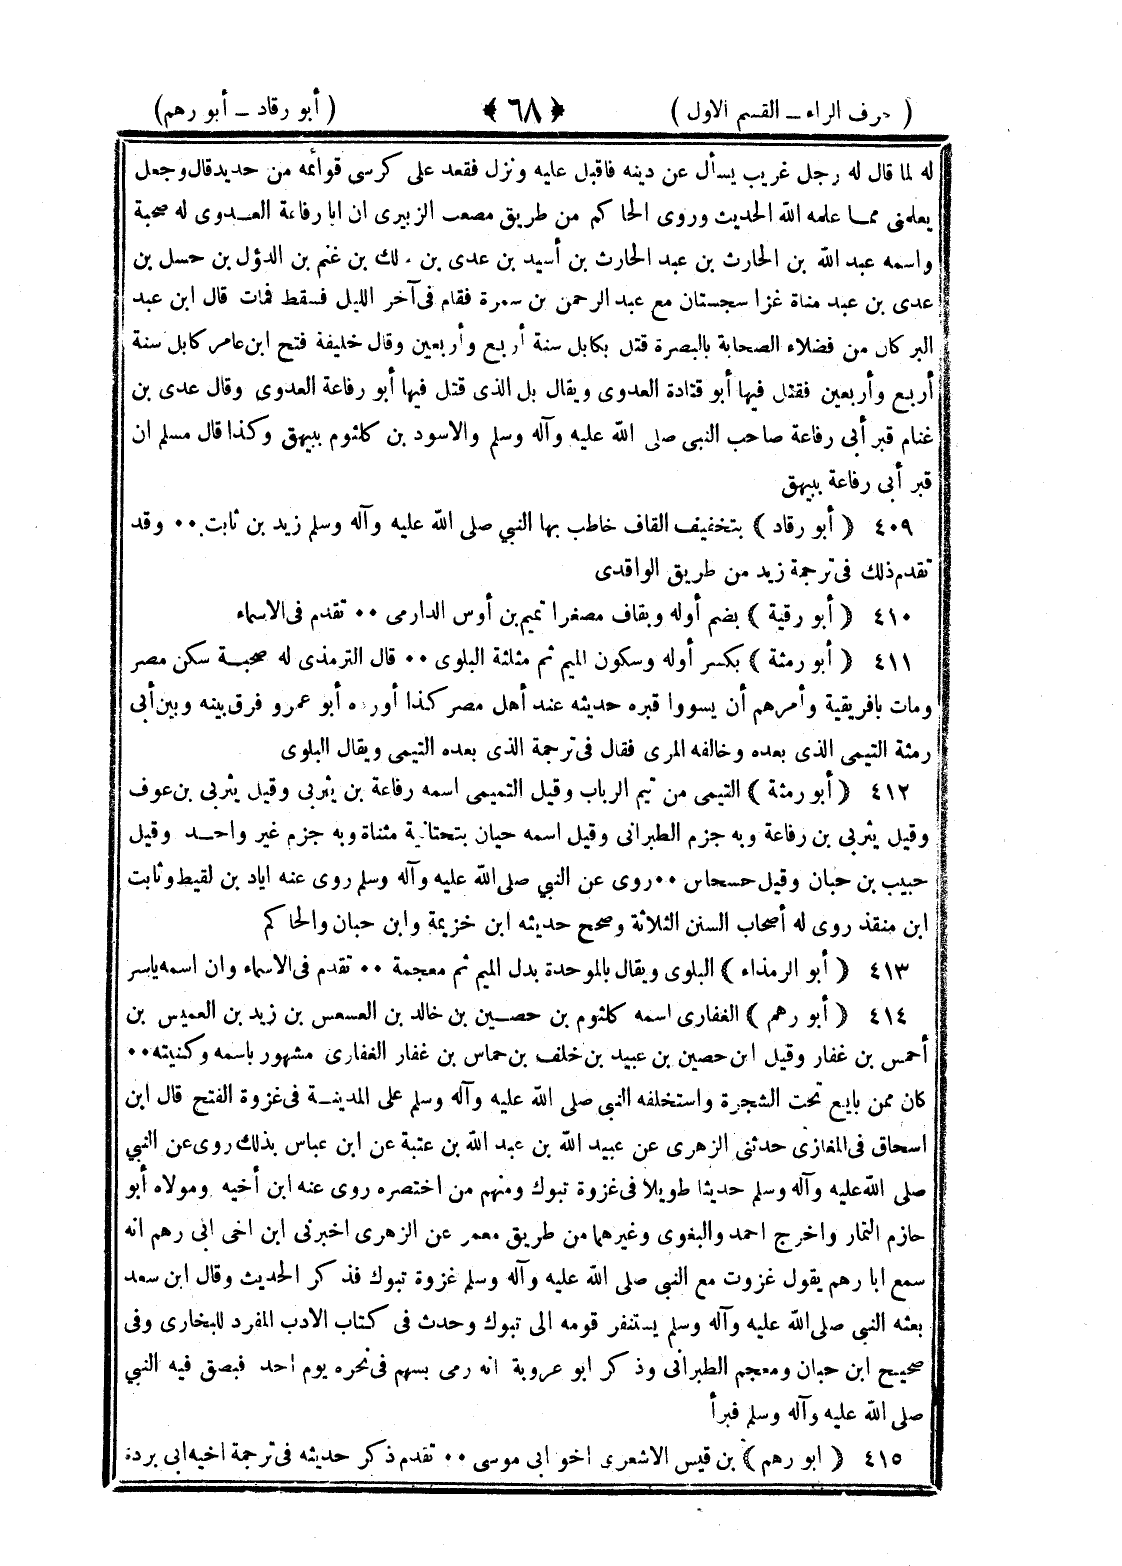 ( حرف الراء ــ القسم الاول )   ﴿ ٦٨ ﴾   ( أبو رقاد ــ أبو رهم )
له لما قال له رجل غريب يسأل عن دينه فاقبل عليه ونزل فقعد على كرسى قوائمه من حديد قال وجعل
يعلمنى مما علمه الله الحديث وروى الحاكم من طريق مصعب الزبيرى ان ابا رفاعة العدوى له صحبة
واسمه عبد الله بن الحارث بن عبد الحارث بن أسيد بن عدى بن لك بن غنم بن الدؤل بن حسل بن
عدى بن عبد مناة غزا سجستان مع عبد الرحمن بن سمرة فقام فى آخر الليل فسقط فمات قال ابن عبد
البر كان من فضلاء الصحابة بالبصرة قتل بكابل سنة أربع وأربعين وقال خليفة فتح ابن عامر كابل سنة
أربع وأربعين فقتل فيها أبو قتادة العدوى ويقال بل الذى قتل فيها أبو رفاعة العدوى وقال عدى بن
غنام قبر أبى رفاعة صاحب النبى صلى الله عليه وآله وسلم والاسود بن كلثوم ببيهق وكذا قال مسلم ان
قبر أبى رفاعة ببيهق
٤٠٩ ( أبو رقاد ) بتخفيف القاف خاطب بها النبي صلى الله عليه وآله وسلم زيد بن ثابت ٠٠ وقد
تقدم ذلك فى ترجمة زيد من طريق الواقدى
٤١٠ ( أبو رقية ) بضم أوله وبقاف مصغرا تميم بن أوس الدارمى ٠٠ تقدم فى الاسماء
٤١١ ( أبو رمثة ) بكسر أوله وسكون الميم ثم مثلثة البلوى ٠٠ قال الترمذى له صحبة سكن مصر
ومات بافريقية وأمرهم أن يسووا قبره حديثه عند أهل مصر كذا أورده أبو عمرو فرق بينه وبين أبى
رمثة التيمى الذى بعده وخالفه المزى فقال فى ترجمة الذى بعده التيمى ويقال البلوى
٤١٢ ( أبو رمثة ) التيمى من تيم الرباب وقيل التميمى اسمه رفاعة بن يثربى وقيل يثربى بن عوف
وقيل يثربى بن رفاعة وبه جزم الطبرانى وقيل اسمه حيان بتحتانية مثناة وبه جزم غير واحد وقيل
حبيب بن حبان وقيل حسحاس ٠٠ روى عن النبي صلى الله عليه وآله وسلم روى عنه اياد بن لقيط وثابت
ابن منقذ روى له أصحاب السنن الثلاثة وصحح حديثه ابن خزيمة وابن حبان والحاكم
٤١٣ ( أبو الرمذاء ) البلوى ويقال بالموحدة بدل الميم ثم معجمة ٠٠ تقدم فى الاسماء وان اسمه ياسر
٤١٤ ( أبو رهم ) الغفارى اسمه كلثوم بن حصين بن خالد بن العسعس بن زيد بن العميس بن
أحمس بن غفار وقيل ابن حصين بن عبيد بن خلف بن حماس بن غفار الغفارى مشهور باسمه وكنيته ٠٠
كان ممن بايع تحت الشجرة واستخلفه النبى صلى الله عليه وآله وسلم على المدينة فى غزوة الفتح قال ابن
اسحاق فى المغازى حدثنى الزهرى عن عبيد الله بن عبد الله بن عتبة عن ابن عباس بذلك روى عن النبي
صلى الله عليه وآله وسلم حديثا طويلا فى غزوة تبوك ومنهم من اختصره روى عنه ابن أخيه ومولاه أبو
حازم التمار واخرج احمد والبغوى وغيرهما من طريق معمر عن الزهرى اخبرنى ابن اخى ابى رهم انه
سمع ابا رهم يقول غزوت مع النبي صلى الله عليه وآله وسلم غزوة تبوك فذكر الحديث وقال ابن سعد
بعثه النبى صلى الله عليه وآله وسلم يستنفر قومه الى تبوك وحدث فى كتاب الادب المفرد للبخارى وفى
صحيح ابن حبان ومعجم الطبرانى وذكر ابو عروبة انه رمى بسهم فى نحره يوم احد فبصق فيه النبي
صلى الله عليه وآله وسلم فبرأ
٤١٥ ( ابو رهم ) بن قيس الاشعرى اخو ابى موسى ٠٠ تقدم ذكر حديثه فى ترجمة اخيه ابى بردة